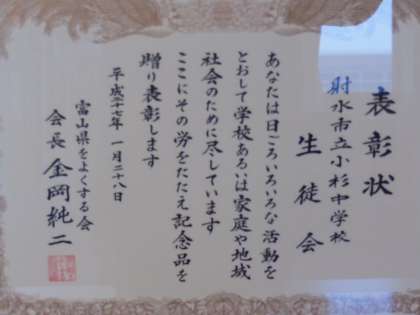 表彰状
射水市立小杉中学校
生徒会
あなたは日ごろいろいろな活動を
とおして学校あるいは家庭や地域
社会のために尽しています
ここにその労をたたえ記念品を
贈り表彰します
平成二十七年一月二十八日
富山県をよくする会
会長 金岡純二